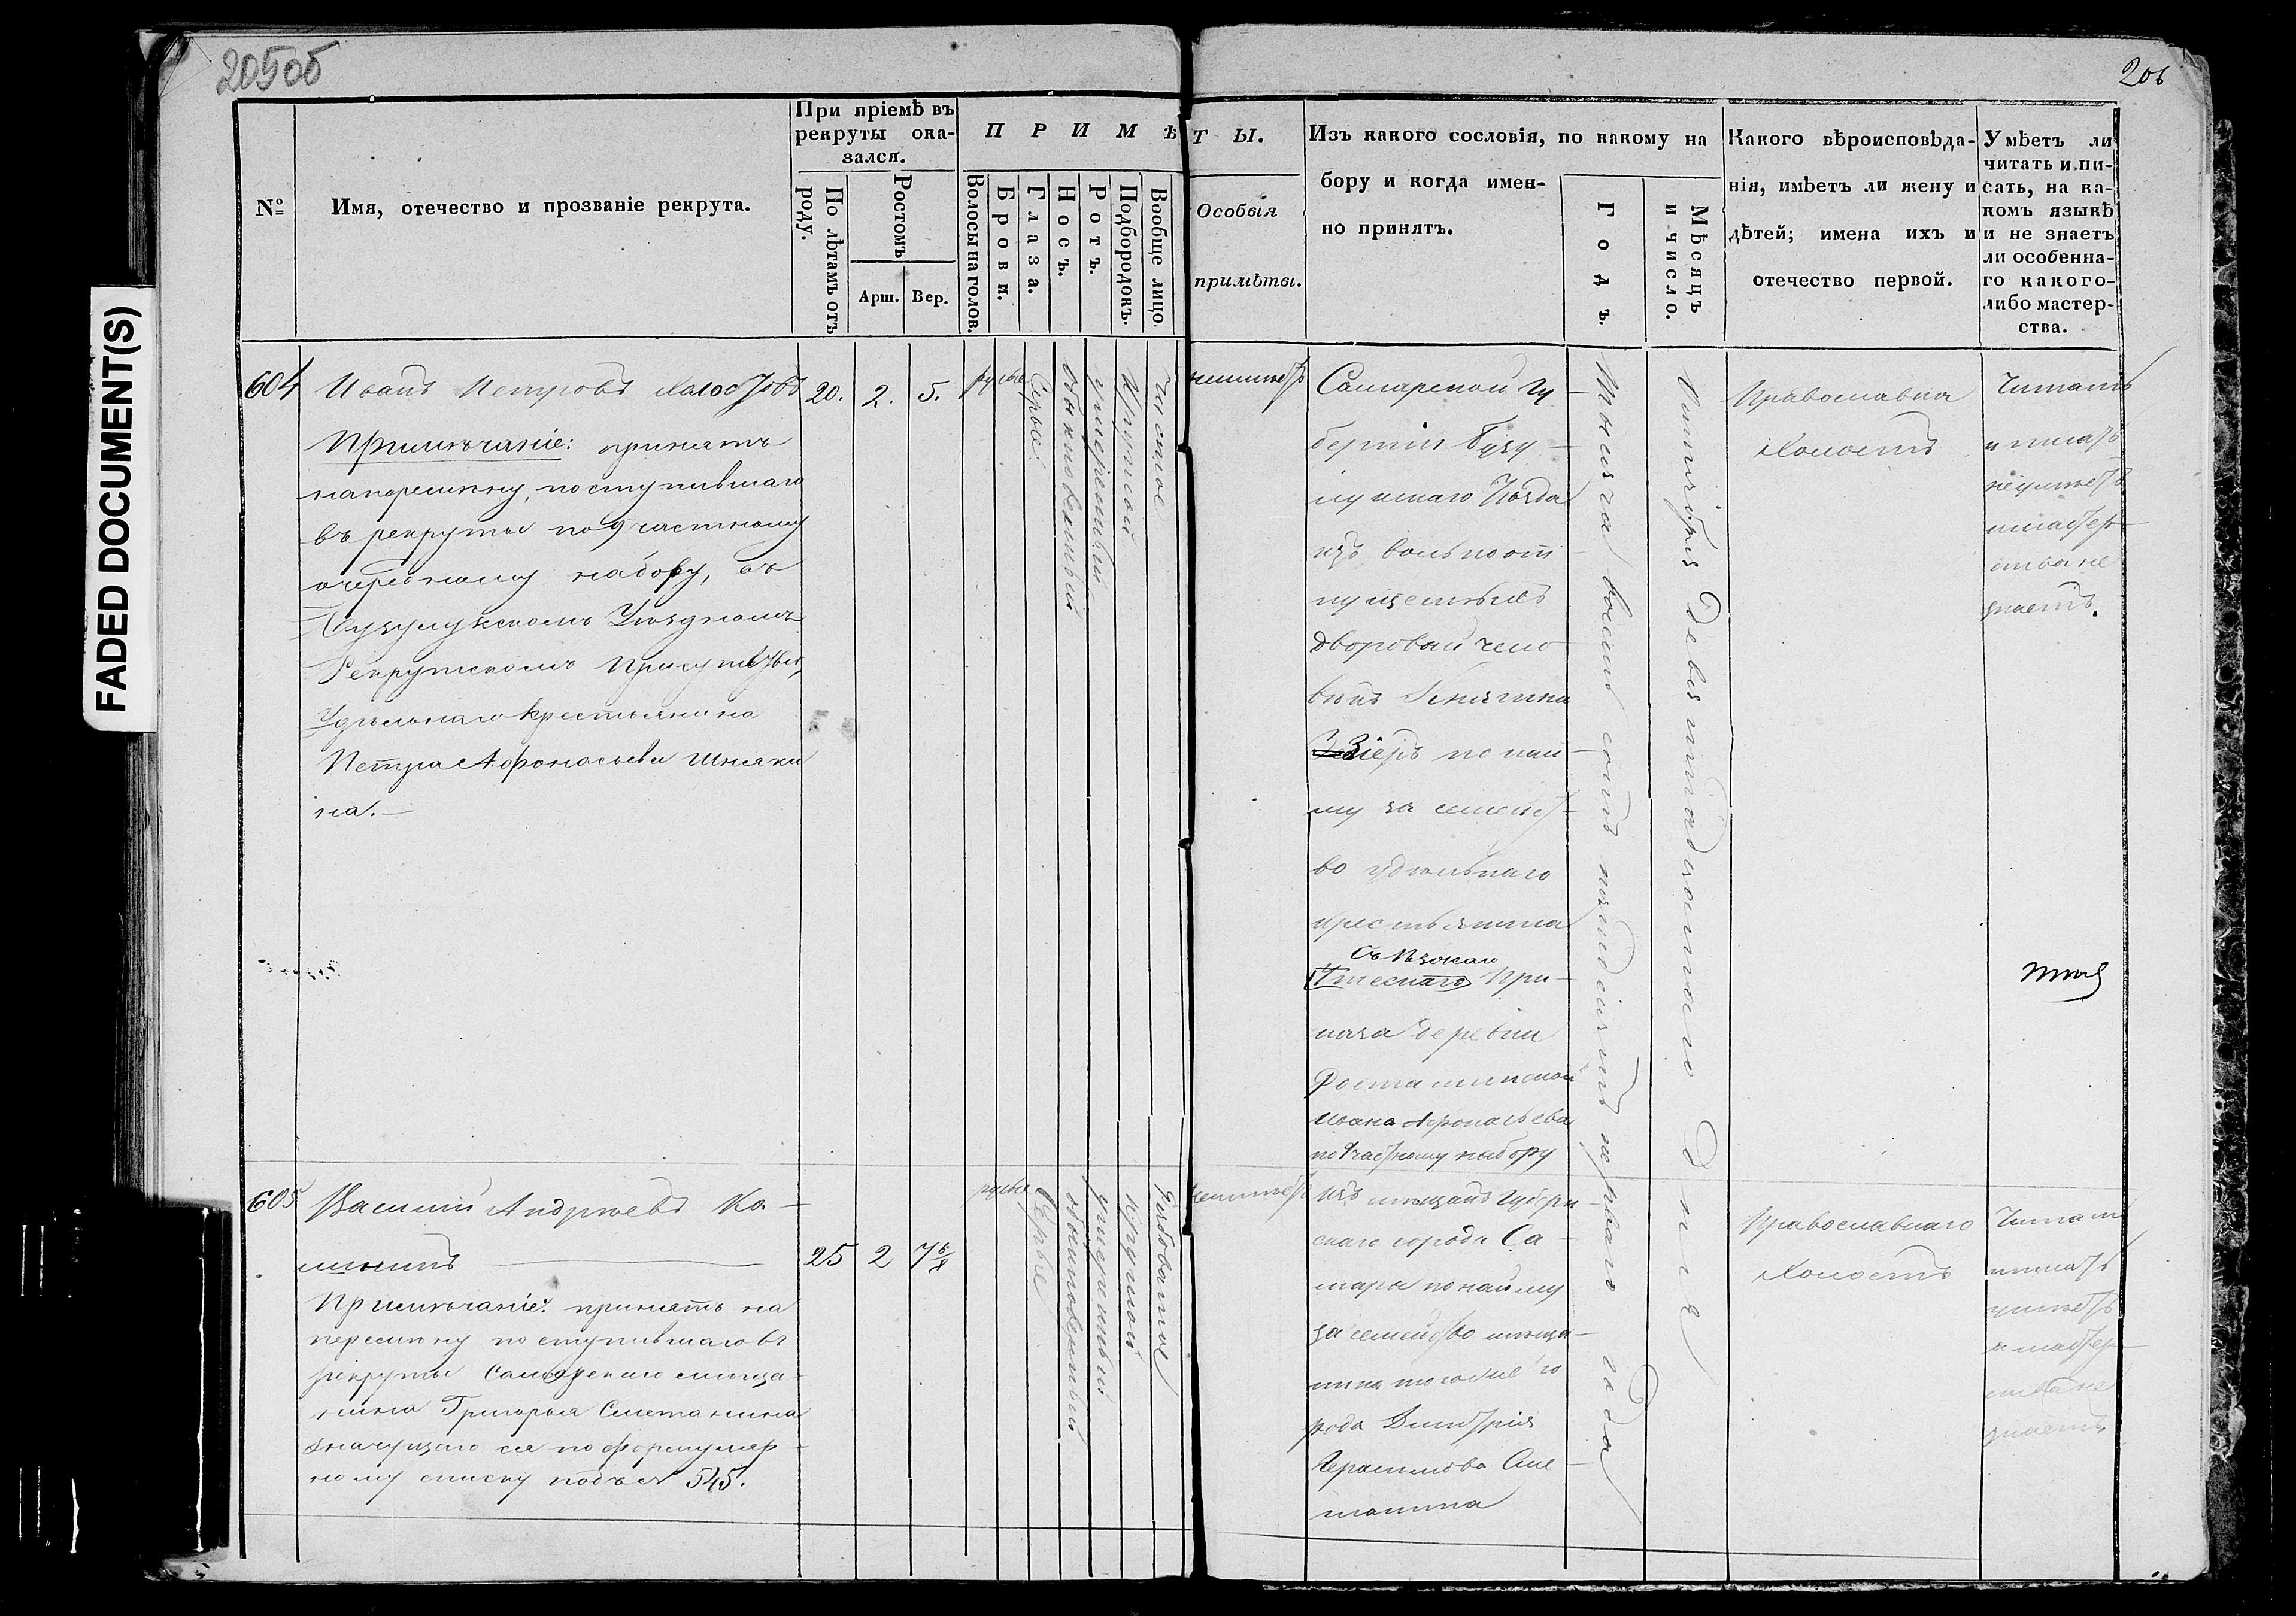 205об
206
FADED DOCUMENT(S)
№
Имя, отечество и прозваніе рекрута.
При пріемѣ въ
рекруты ока-
зался.
По лѣтамъ отъ
роду.
Ростомъ
Арш.
Вер.
ПРИМѢТЫ.
Волосы на голов.
Брови.
Глаза.
Носъ.
Ротъ.
Подбородокъ.
Вообще лицо.
Особыя
примѣты.
Изъ какого сословія, по какому на
бору и когда имен-
но принятъ.
Годъ.
Мѣсяцъ
и число.
Какого вѣроисповѣда-
нія, имѣетъ ли жену и
дѣтей; имена ихъ и
отечество первой.
Умѣетъ ли
читать и пи-
сать, на ка-
комъ языкѣ
и не знаетъ
ли особенна-
го какого-
либо мастер-
ства.
604
Иванъ Петровъ
Примѣчаніе: принятъ
на перемѣну, поступившаго
въ рекруты по 9 частному
очередному набору, въ
Бузулукскомъ Уѣздномъ
Рекрутскомъ Присутствіи,
Удѣльнаго крестьянина
Петра Афонасьева Шняки
на.—
20.
2.
5.
русые
Сѣрые
обыкновенный
умѣренный
Круглой
Чистое
неимѣетъ
Самарской гу
берніи Бузу
лукскаго Уѣзда
изъ вольноот
пущенныхъ
дворовый чело
вѣкъ Княгини
по най
му за семейст
во удѣльнаго
крестьянина
При
каза деревни
Ивана Афонасьева
по 9 частному набору
Тысяча восемь сотъ пятдесятъ перваго года
Октября девятнадцатаго дня
Православна
Холостъ
Читать
и писать
неумѣетъ
мастер
ства не
знаетъ.
605
Василий Андреевъ Ка
лининъ
Примѣчаніе: принятъ на
перемѣну поступившаго въ
рекруты Самарскаго мѣща
нина Григорья Сметанина
значущаго ся по формуляр
ному списку подъ № 545.
25
2
7 6/8
русые
Сѣрые
обыкновенный
умѣренный
круглой
Рябоватое
неимѣетъ
Изъ мѣщанъ Губерн
скаго города Са
мары по найму
за семейство мѣща
нина тогоже го
рода Дмитрія
Герасимова Сме
танина
Православнаго
Холостъ
Читать
писать
умѣетъ
а мастер
ства не
знаетъ